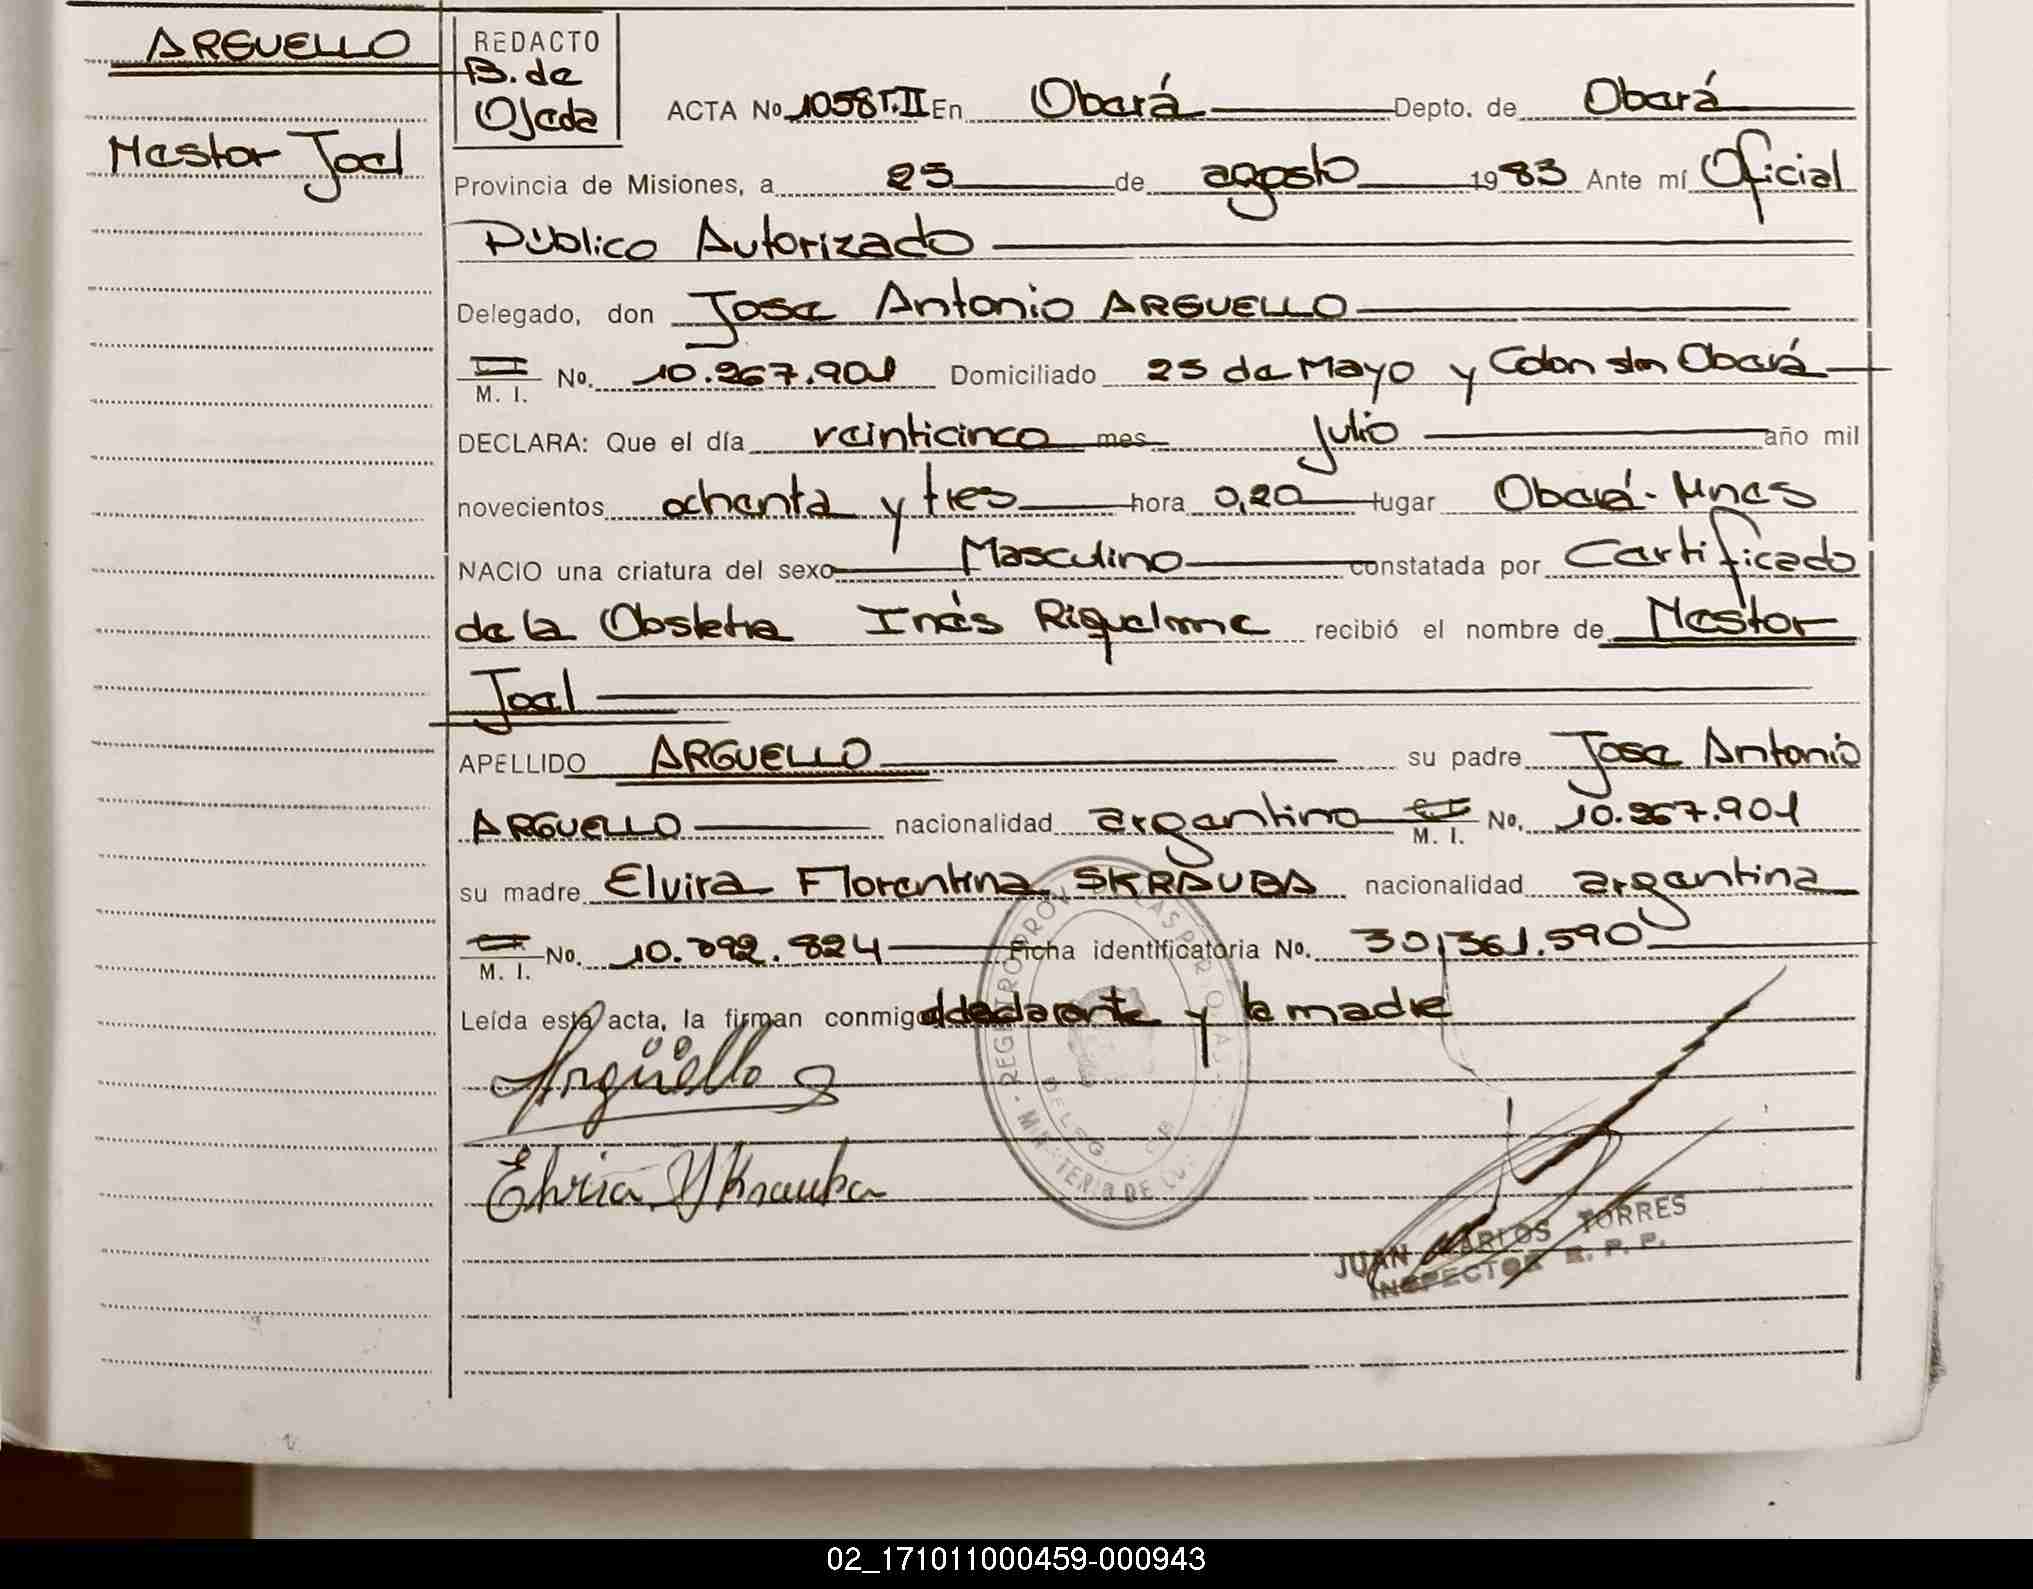 ARGUELLO
Nestor Joel
REDACTO
B. de
Ojeda
ACTA No 1058 T.II En Oberá Depto. de Oberá
Provincia de Misiones, a 25 de agosto 1983 Ante mí Oficial
Público Autorizado
Delegado, don Jose Antonio ARGUELLO
M. I. No. 10.267.901 Domiciliado 25 de Mayo y Colon s/n Oberá
DECLARA: Que el día veinticinco mes julio año mil
novecientos ochenta y tres hora 0,20 lugar Oberá - Mnes
NACIO una criatura del sexo Masculino constatada por Certificado
de la Obstetra Inés Riquelme recibió el nombre de Nestor
Joel
APELLIDO ARGUELLO su padre Jose Antonio
ARGUELLO nacionalidad argentino C. I. M. I. No. 10.267.901
su madre Elvira Florentina SKRAUBA nacionalidad argentina
M. I. No. 10.092.824 Ficha identificatoria No. 30.361.590
Leída esta acta, la firman conmigo el declarante y la madre
Argüello
Elvira Skrauba
REGISTRO PROV DE LAS PER
DELEG.
MINISTERIO DE
JUAN CARLOS TORRES
INSPECTOR R. P. P.
02_171011000459-000943